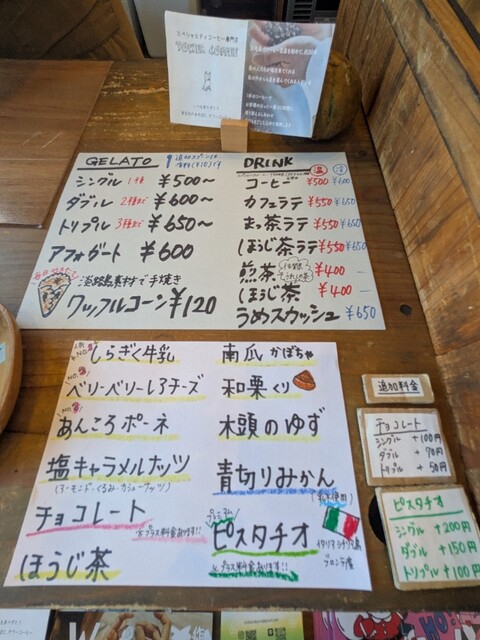 スペシャルティコーヒー専門店
GELATO
シングル 1種 ¥500〜
ダブル 2種まで ¥600〜
トリプル 3種まで ¥650〜
アフォガート ¥600
淡路島素材で手焼き
ワッフルコーン ¥120
DRINK
温 冷
コーヒー ¥500 ¥600
カフェラテ ¥550 ¥650
まっ茶ラテ ¥550 ¥650
ほうじ茶ラテ ¥550 ¥650
煎茶 ¥400 —
ほうじ茶 ¥400 —
うめスカッシュ ¥650
しらぎく牛乳
ベリーベリーレアチーズ
あんころポーネ
塩キャラメルナッツ
(アーモンド・くるみ・カシューナッツ)
チョコレート
※プラス料金あります!!
ほうじ茶
南瓜 かぼちゃ
和栗 くり
木頭のゆず
青切りみかん
ピスタチオ
※プラス料金あります!!
イタリア シチリア島
ブロンテ産
追加料金
チョコレート
シングル +100円
ダブル +70円
トリプル +50円
ピスタチオ
シングル +200円
ダブル +150円
トリプル +100円